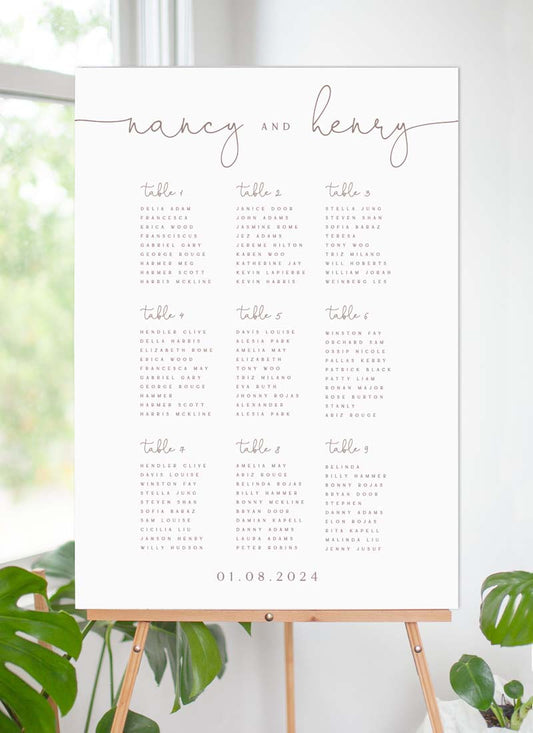 nancy AND henry
table 1
DELIA ADAM
FRANCESCA
ERICA WOOD
FRANSCISCUS
GABRIEL GARY
GEORGE ROUGE
HARMER MEG
HARMER SCOTT
HARRIS MCKLINE
table 2
JANICE DOOR
JOHN ADAMS
JASMINE ROME
JEZ ADAMS
JEREME HILTON
KAREN WOO
KATHERINE JAY
KEVIN LAPIERRE
KEVIN HARRIS
table 3
STELLA JUNG
STEVEN SHAN
SOFIA BABAZ
TERESA
TONY WOO
TRIZ MILANO
WILL ROBERTS
WILLIAM JORAH
WEINBERG LES
table 4
HENDLER CLIVE
DELLA HARRIS
ELIZABETH ROME
ERICA WOOD
FRANCESCA MAY
GABRIEL GARY
GEORGE ROUGE
HAMMER
HARMER SCOTT
HARRIS MCKLINE
table 5
DAVIS LOUISE
ALESIA PARK
AMELIA MAY
ELIZABETH
TONY WOO
TRIZ MILANO
EVA RUTH
JHONNY ROJAS
ALEXANDER
ALESIA PARK
table 6
WINSTON FAY
ORCHARD SAM
OSSIP NICOLE
PALLAS KERRY
PATRICK BLACK
PATTY LIAM
ROHAN MAJOR
ROSE BURTON
STANLY
ABIZ ROUGE
table 7
HENDLER CLIVE
DAVIS LOUISE
WINSTON FAY
STELLA JUNG
STEVEN SHAN
SOFIA BABAZ
SAM LOUISE
CICILIA LIU
JANSON HENRY
WILLY HUDSON
table 8
AMELIA MAY
ABIZ ROUGE
BELINDA ROJAS
BILLY HAMMER
RONNY MCKLINE
BRYAN DOOR
DAMIAN KAPELL
DANNY ADAMS
LAURA ADAMS
PETER ROBINS
table 9
BELINDA
BILLY HAMMER
RONNY ROJAS
BRYAN DOOR
STEPHEN
DANNY ADAMS
ELON ROJAS
RITA KAPELL
MALINDA LIU
JENNY JUSUF
01.08.2024